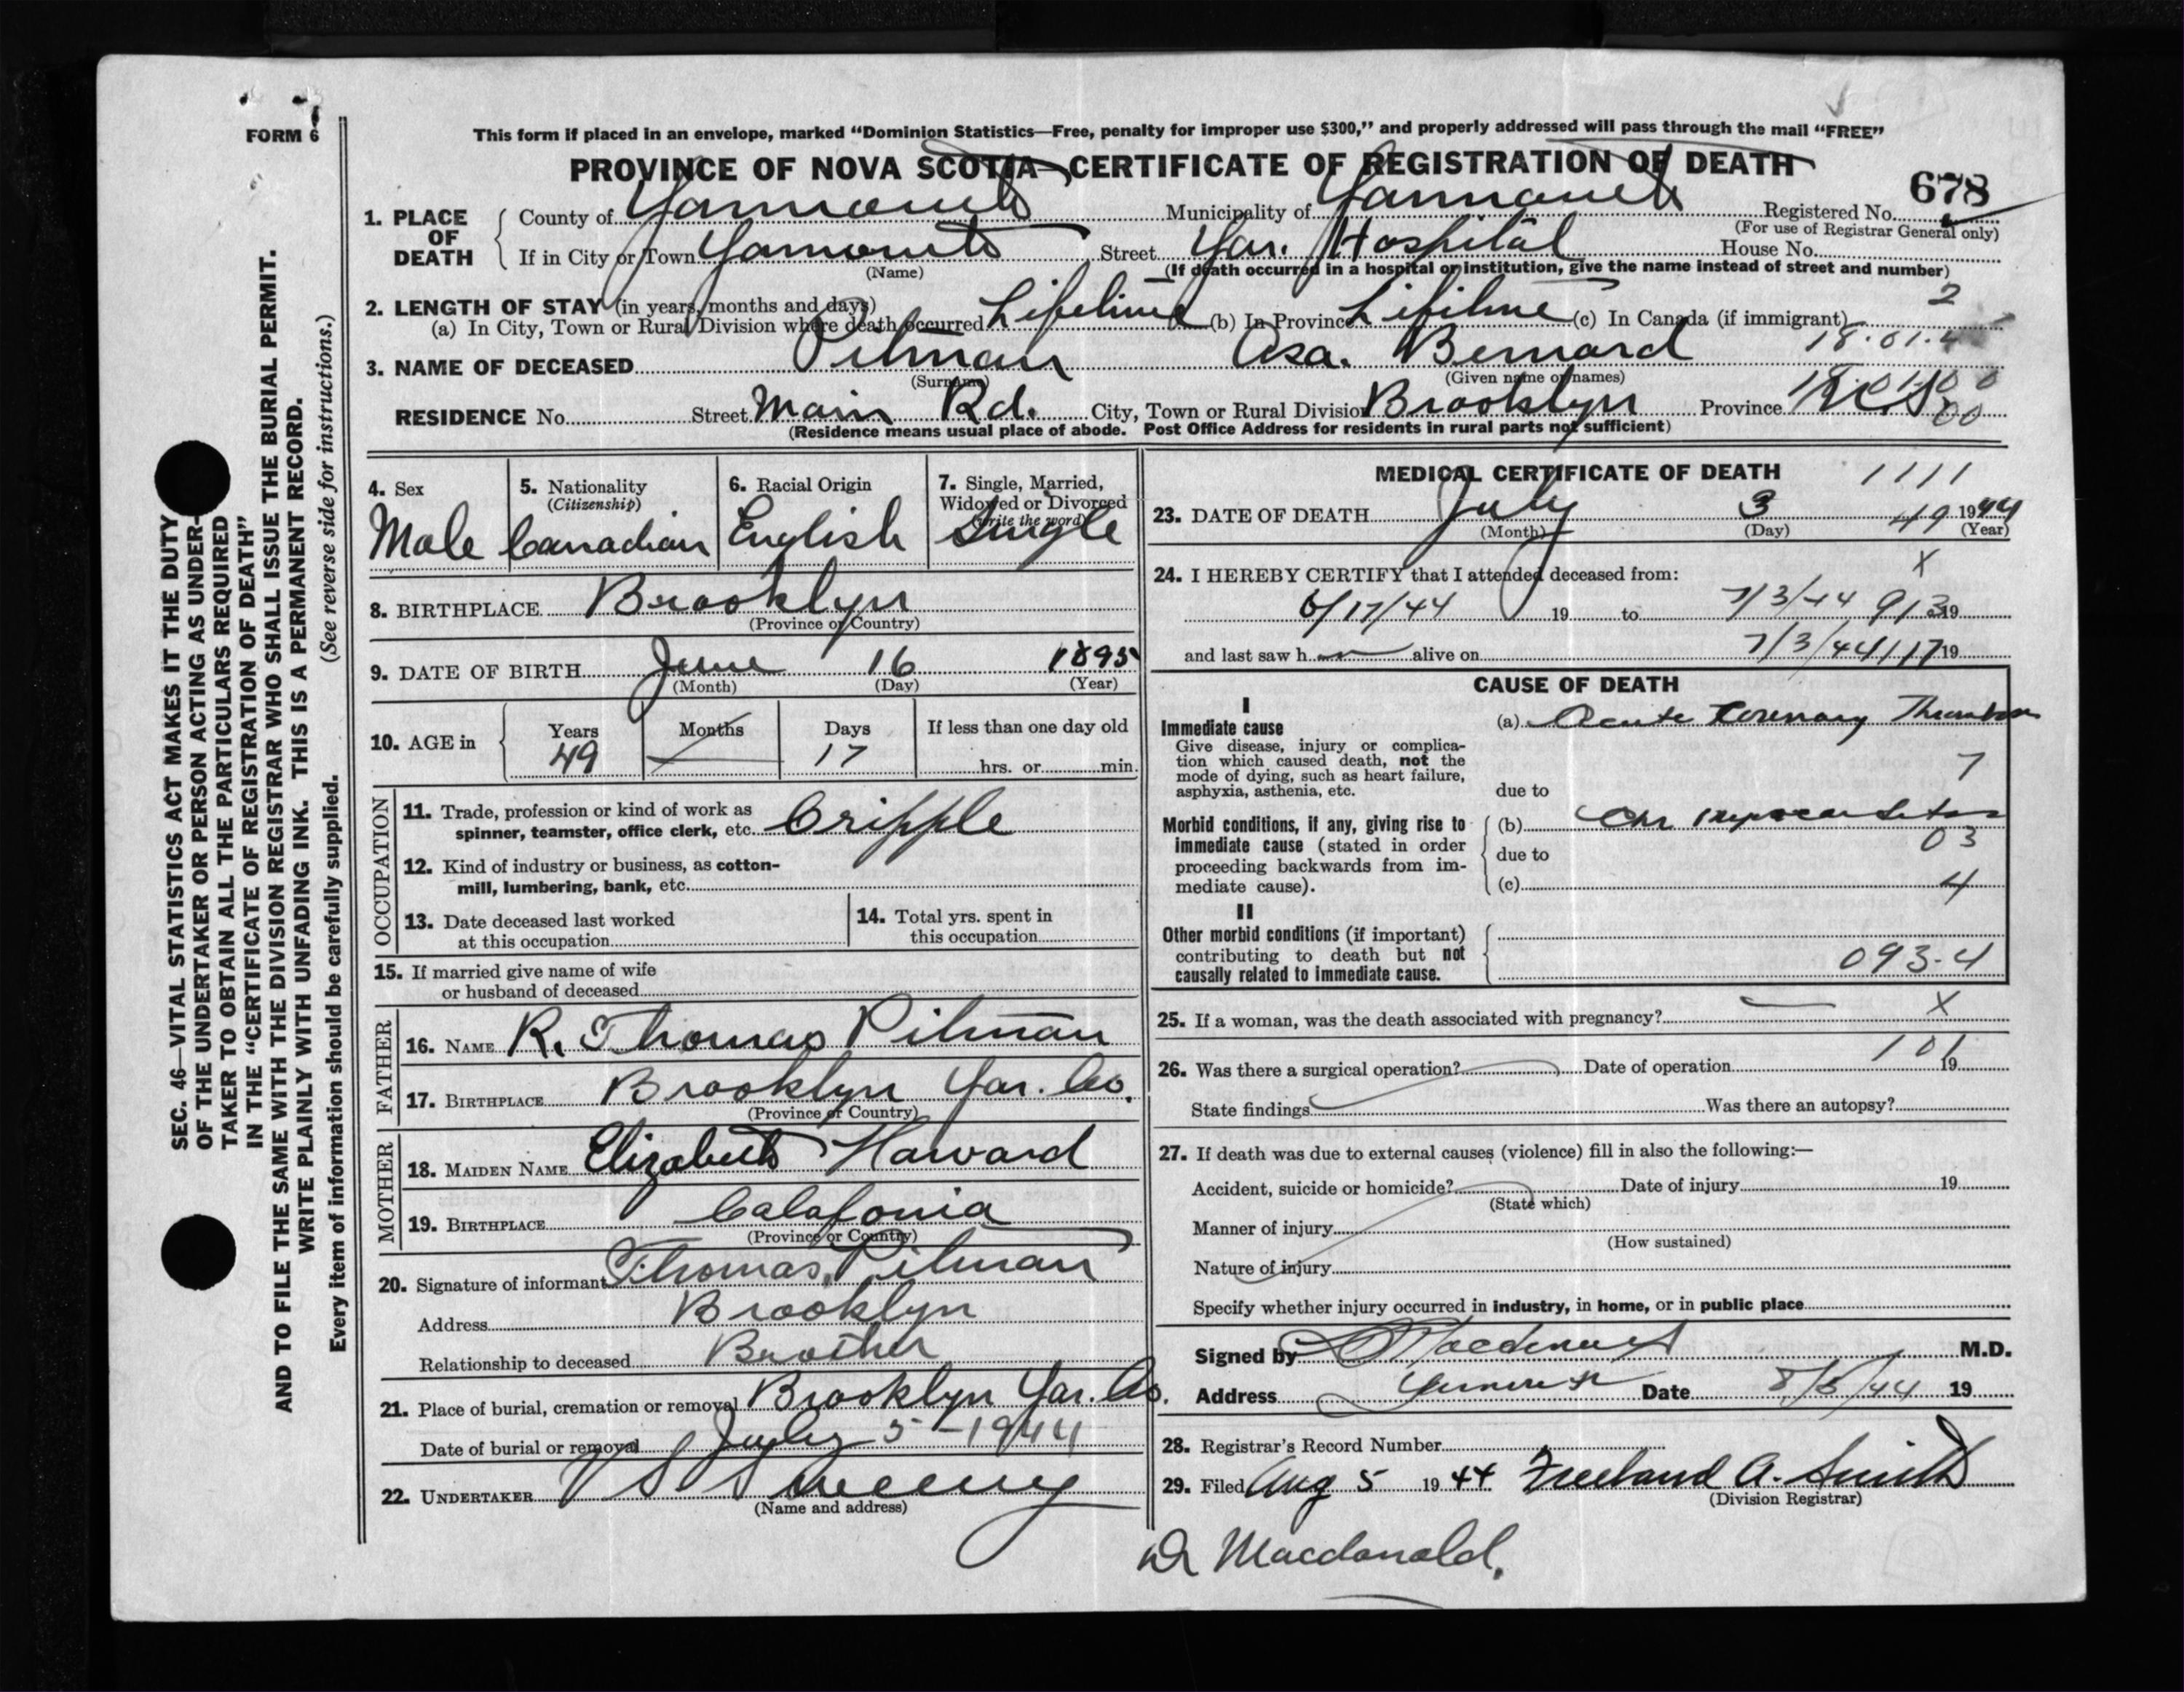 FORM 6
This form if placed in an envelope, marked "Dominion Statistics—Free, penalty for improper use $300," and properly addressed will pass through the mail "FREE"
PROVINCE OF NOVA SCOTIA—CERTIFICATE OF REGISTRATION OF DEATH
678
1. PLACE OF DEATH
County of Yarmouth Municipality of Yarmouth Registered No.
(For use of Registrar General only)
If in City or Town Yarmouth Street Yar. Hospital House No.
(Name) (If death occurred in a hospital or institution, give the name instead of street and number)
2. LENGTH OF STAY (in years, months and days) 2
(a) In City, Town or Rural Division where death occurred Lifetime (b) In Province Lifetime (c) In Canada (if immigrant)
3. NAME OF DECEASED Pitman Asa. Bernard
(Surname) (Given name or names)
RESIDENCE No. Street Main Rd. City, Town or Rural Division Brooklyn Province N.S.
(Residence means usual place of abode. Post Office Address for residents in rural parts not sufficient)
4. Sex
Male
5. Nationality
(Citizenship)
Canadian
6. Racial Origin
English
7. Single, Married,
Widowed or Divorced
(write the word)
Single
8. BIRTHPLACE Brooklyn
(Province or Country)
9. DATE OF BIRTH June 16 1895
(Month) (Day) (Year)
10. AGE in
Years Months Days If less than one day old
49 — 17 hrs. or min.
OCCUPATION
11. Trade, profession or kind of work as
spinner, teamster, office clerk, etc. Cripple
12. Kind of industry or business, as cotton-
mill, lumbering, bank, etc.
13. Date deceased last worked
at this occupation
14. Total yrs. spent in
this occupation
15. If married give name of wife
or husband of deceased
FATHER
16. NAME R. Thomas Pitman
17. BIRTHPLACE Brooklyn Yar. Co.
(Province or Country)
MOTHER
18. MAIDEN NAME Elizabeth Harvard
19. BIRTHPLACE Calafonia
(Province or Country)
20. Signature of informant Thomas Pitman
Address Brooklyn
Relationship to deceased Brother
21. Place of burial, cremation or removal Brooklyn Yar. Co.
Date of burial or removal July 5 - 1944
22. UNDERTAKER V S Sweeny
(Name and address)
MEDICAL CERTIFICATE OF DEATH 1111
23. DATE OF DEATH July 3 49 1944
(Month) (Day) (Year)
24. I HEREBY CERTIFY that I attended deceased from: X
6/17/44 19 to 7/3/44 19
and last saw h alive on 7/3/44 19
CAUSE OF DEATH
I
Immediate cause
Give disease, injury or complica-
tion which caused death, not the
mode of dying, such as heart failure,
asphyxia, asthenia, etc.
(a) Acute Coronary Thrombosis
7
due to
Morbid conditions, if any, giving rise to
immediate cause (stated in order
proceeding backwards from im-
mediate cause).
(b) Chr Myocarditis
03
due to
(c) 4
II
Other morbid conditions (if important)
contributing to death but not
causally related to immediate cause.
093-4
25. If a woman, was the death associated with pregnancy? — X
26. Was there a surgical operation? Date of operation 101 19
State findings Was there an autopsy?
27. If death was due to external causes (violence) fill in also the following:—
Accident, suicide or homicide? Date of injury 19
(State which)
Manner of injury
(How sustained)
Nature of injury
Specify whether injury occurred in industry, in home, or in public place
Signed by Macdonald M.D.
Address Yarmouth Date 8/5/44 19
28. Registrar's Record Number
29. Filed Aug 5 1944 Freeland A. Smith
(Division Registrar)
Dr Macdonald.
SEC. 46—VITAL STATISTICS ACT MAKES IT THE DUTY
OF THE UNDERTAKER OR PERSON ACTING AS UNDER-
TAKER TO OBTAIN ALL THE PARTICULARS REQUIRED
IN THE "CERTIFICATE OF REGISTRATION OF DEATH"
AND TO FILE THE SAME WITH THE DIVISION REGISTRAR WHO SHALL ISSUE THE BURIAL PERMIT.
WRITE PLAINLY WITH UNFADING INK. THIS IS A PERMANENT RECORD.
Every item of information should be carefully supplied. (See reverse side for instructions.)